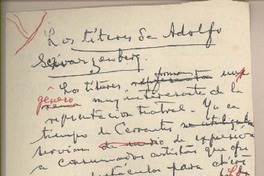 Los títeres de Adolfo
Schwarzenberg.
Los títeres forman un
género muy interesante de la
representación teatral. Ya en
tiempo de Cervantes
servían de medio de expresión
a consumados artistas que ofre
para otros